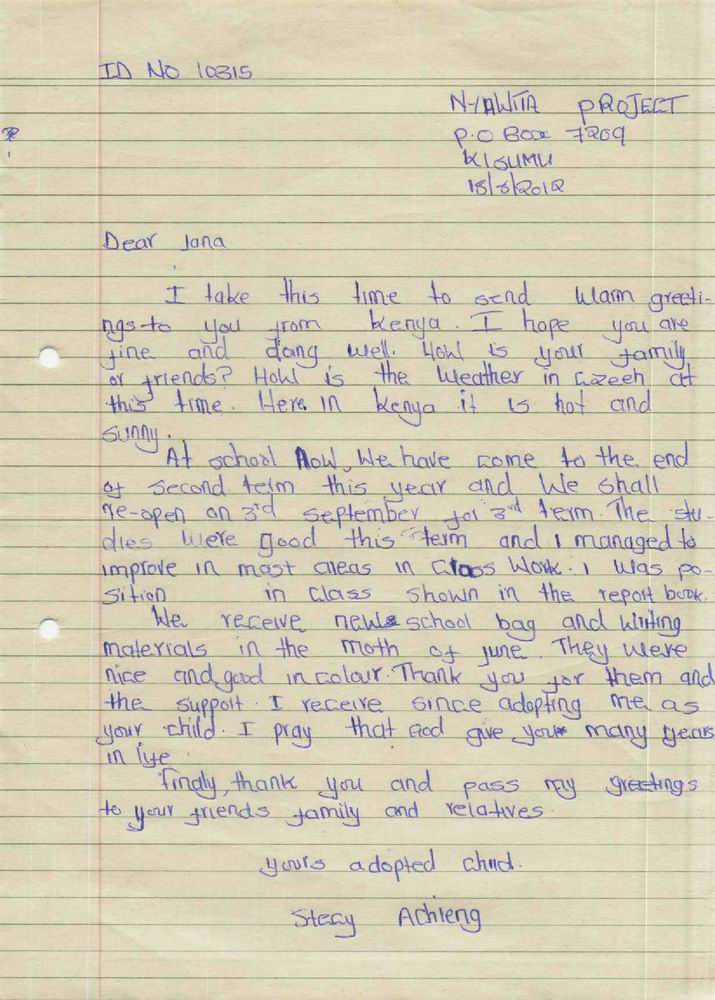 ID NO 10315
NYAWITA PROJECT
P.O BOX 7269
KISUMU
2012
Dear Jana
I take this time to send warm greeti-
ngs to you from kenya. I hope you are
fine and doing well. How is your family
or friends? How is the weather in Czech at
this time. Here in kenya it is hot and
sunny.
At school Now, We have come to the end
of second term this year and we shall
re-open on 3rd september for 3rd term. The stu-
dies were good this term and i managed to
improve in most areas in Class Work. i was po-
sition in class shown in the report book.
We receive new school bag and writing
materials in the moth of june. They were
nice and good in colour. Thank you for them and
the support. I receive since adopting me as
your child. I pray that God give you many years
in life
finaly, thank you and pass my greetings
to your friends family and relatives.
yours adopted child.
Stecy Achieng